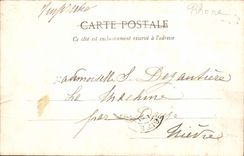 Rhone
CARTE POSTALE
Ce côté est exclusivement réservé à l'adresse
Mademoiselle S. Dezautière
La Machine
par
Nièvre